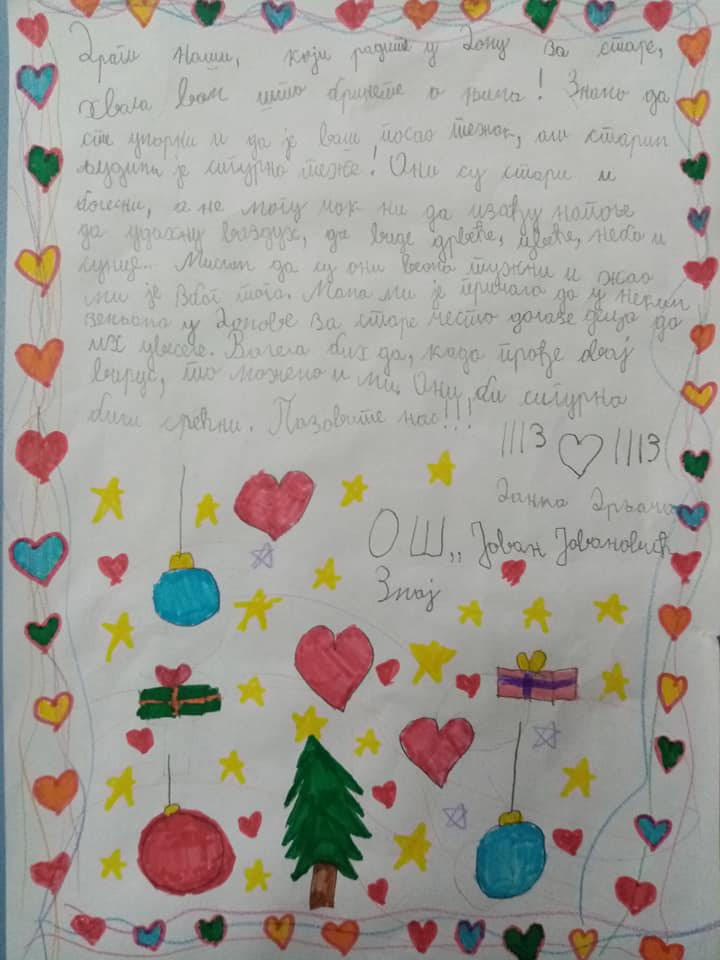 Драги наши, који радите у Дому за старе,
хвала вам што бринете о њима! Знамо да
сте упорни и да је ваш посао тежак, али старим
људима је сигурно теже! Они су стари и
болесни, а не могу чак ни да изађу напоље
да удахну ваздух, да виде дрвеће, цвеће, небо и
сунце. Мислим да су они веома тужни и жао
ми је због тога. Мама ми је причала да у неким
земљама у Домове за старе често долазе деца да
их увеселе. Волела бих да, када прође овај
вирус, то можемо и ми. Они би сигурно
били срећни. Позовите нас!!!
III3 III3
ОШ „Јован Јовановић
Змај